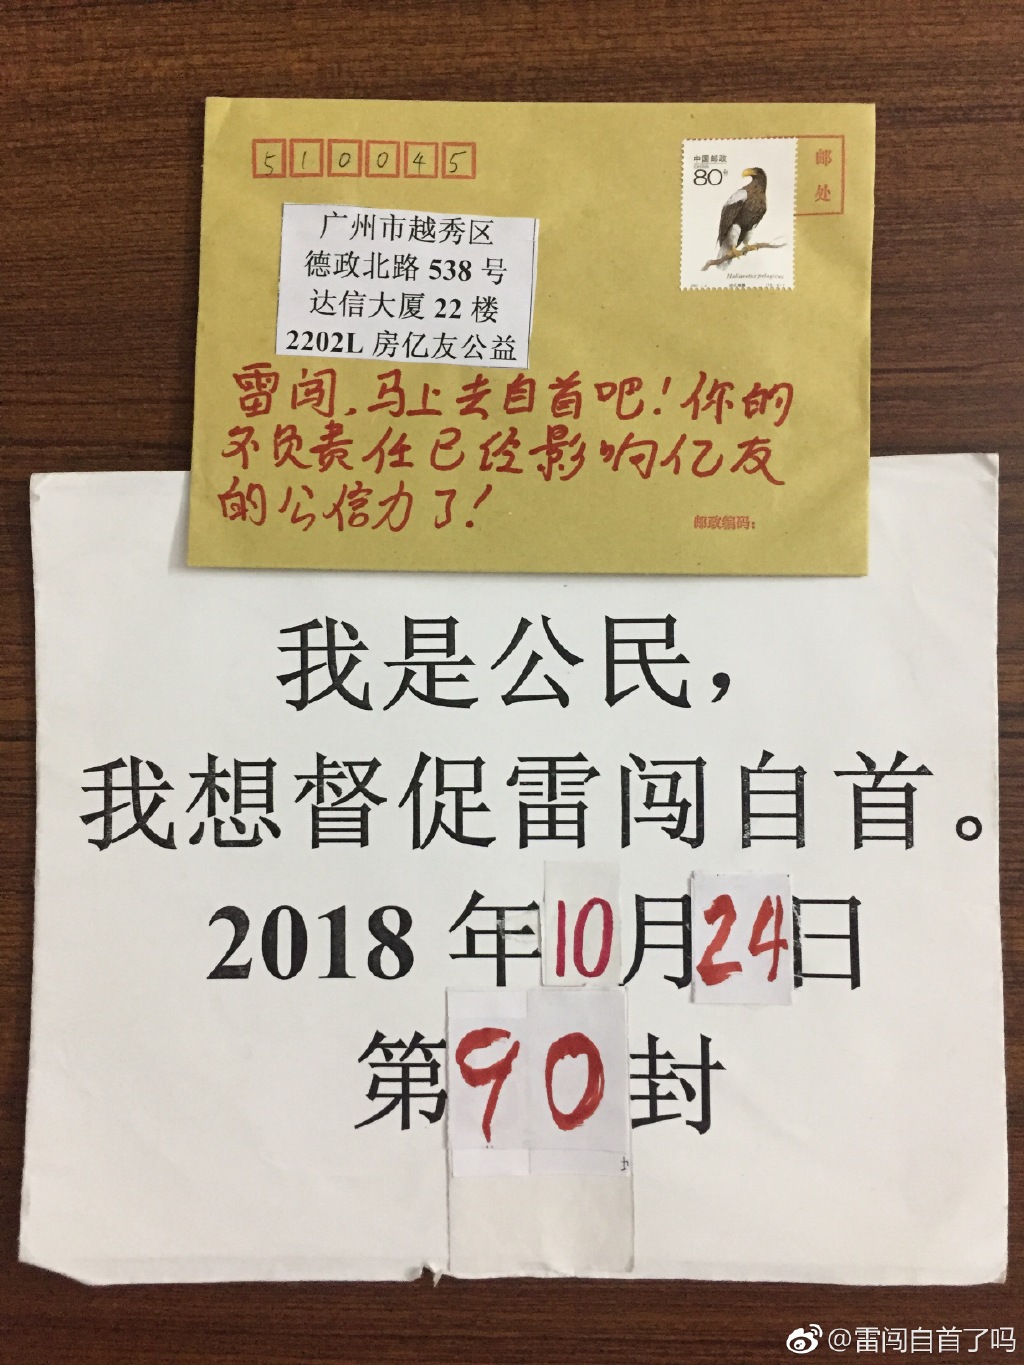 510045
中国邮政
80分
邮
处
Haliaeetus pelagicus
广州市越秀区
德政北路 538 号
达信大厦 22 楼
2202L 房亿友公益
雷闯,马上去自首吧!你的
不负责任已经影响亿友
的公信力了!
邮政编码:
我是公民,
我想督促雷闯自首。
2018 年10月24日
第90封
@雷闯自首了吗